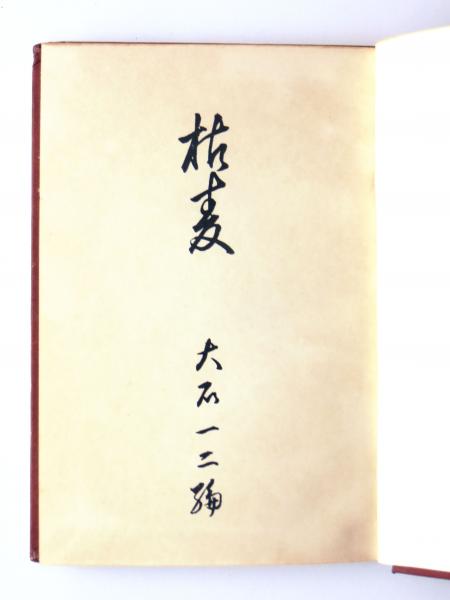 枯麦
大石一二編